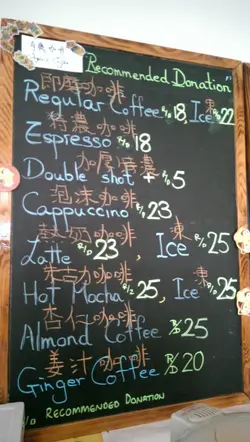 Recommended Donation
即磨咖啡
Regular Coffee R/D 18, Ice 凍 R/D 22
特濃咖啡
Espresso R/D 18
加層普濃
Double shot + 5
泡沫咖啡
Cappuccino R/D 23
熱奶咖啡
Latte R/D 23, Ice 凍 R/D 25
朱古力咖啡
Hot Mocha R/D 25, Ice 凍 R/D 25
杏仁咖啡
Almond Coffee R/D 25
姜汁咖啡
Ginger Coffee R/D 20
R/D RECOMMENDED DONATION